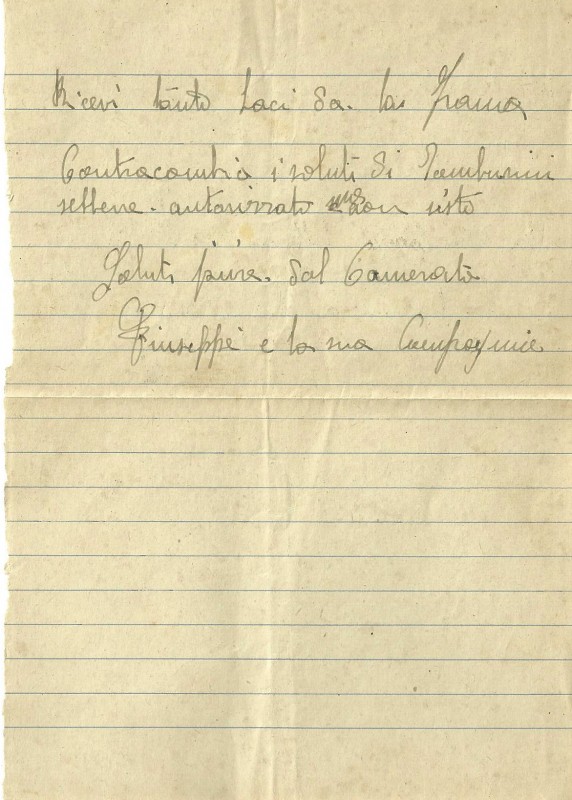 Ricevi tanto baci da la Mamma
Contracambia i saluti di Tamburini
sebbene autorizzato non visto
Saluti pura dal Camerata
Giuseppe e la sua Compagnie